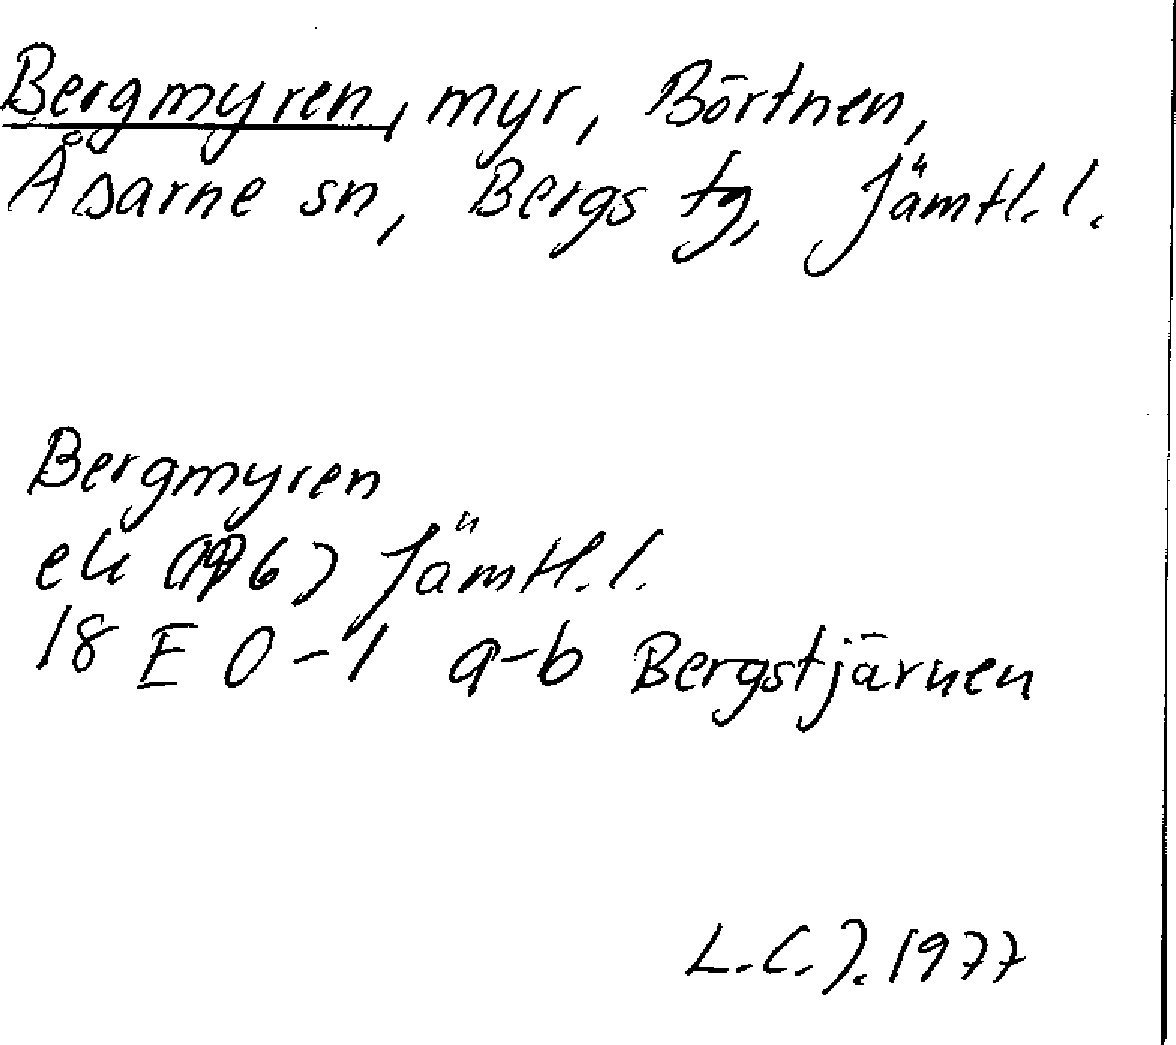 Bergmyren, myr, Börtnen,
Åsarne sn, Bergs tg, Jämtl. l.
Bergmyren
ek (1976) Jämtl. l.
18 E 0-1 a-b Bergstjärnen
L.C.J. 1977